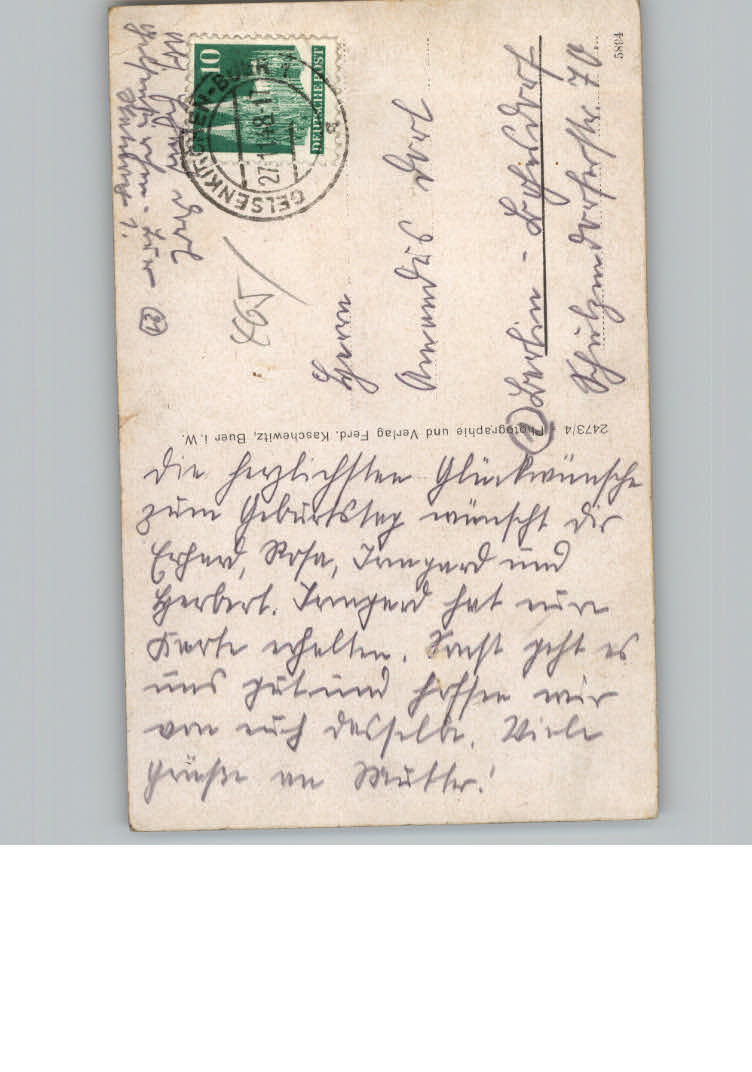 Die herzlichsten Glückwünsche
zum Geburtstag wünscht dir
Erhard, Rosa, Irmgard und
Herbert. Irmgard hat eure
Karte erhalten. Sonst geht es
uns gut und hoffen wir
von euch dasselbe. Viele
Grüße an Mutter!
2473/4 Photographie und Verlag Ferd. Kaschewitz, Buer i. W.
Gelsenkirchen-Buer
(21)
10
DEUTSCHE POST
GELSENKIRCHEN-BUER
27
b
465
Herrn
Amandus
Berlin - Bohnsdorf
Schulzendorferstr. 70
5894